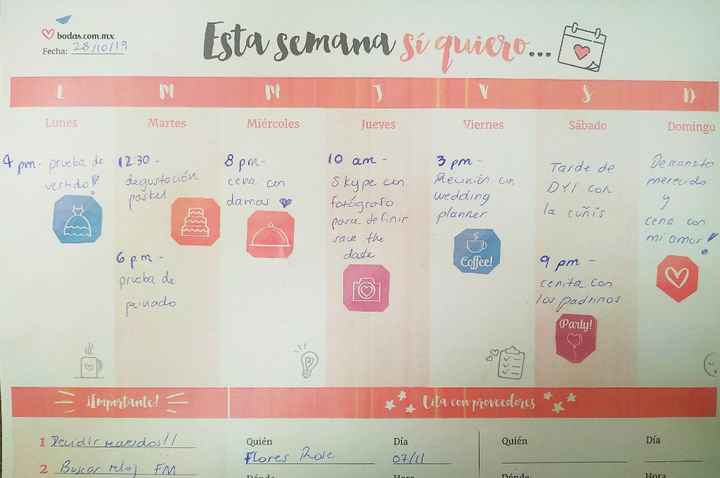 bodas.com.mx
Fecha: 28/10/19
Esta semana sí quiero...
L M M J V S D
Lunes Martes Miércoles Jueves Viernes Sábado Domingo
4 pm - prueba de
vestido
12:30 -
degustación
pastel
6 pm -
prueba de
peinado
8 pm -
cena con
damas
10 am -
Skype con
fotógrafo
para definir
save the
date
3 pm -
Reunión con
wedding
planner
Coffee!
Tarde de
DYI con
la cuñis
9 pm -
cenita con
los padrinos
Party!
Descansito
merecido
y
cena con
mi amor
¡Importante!
1 Decidir !!
2 Buscar reloj FM
Cita con proveedores
Quién Día Quién Día
Flores 07/11
Dónde Hora Dónde Hora